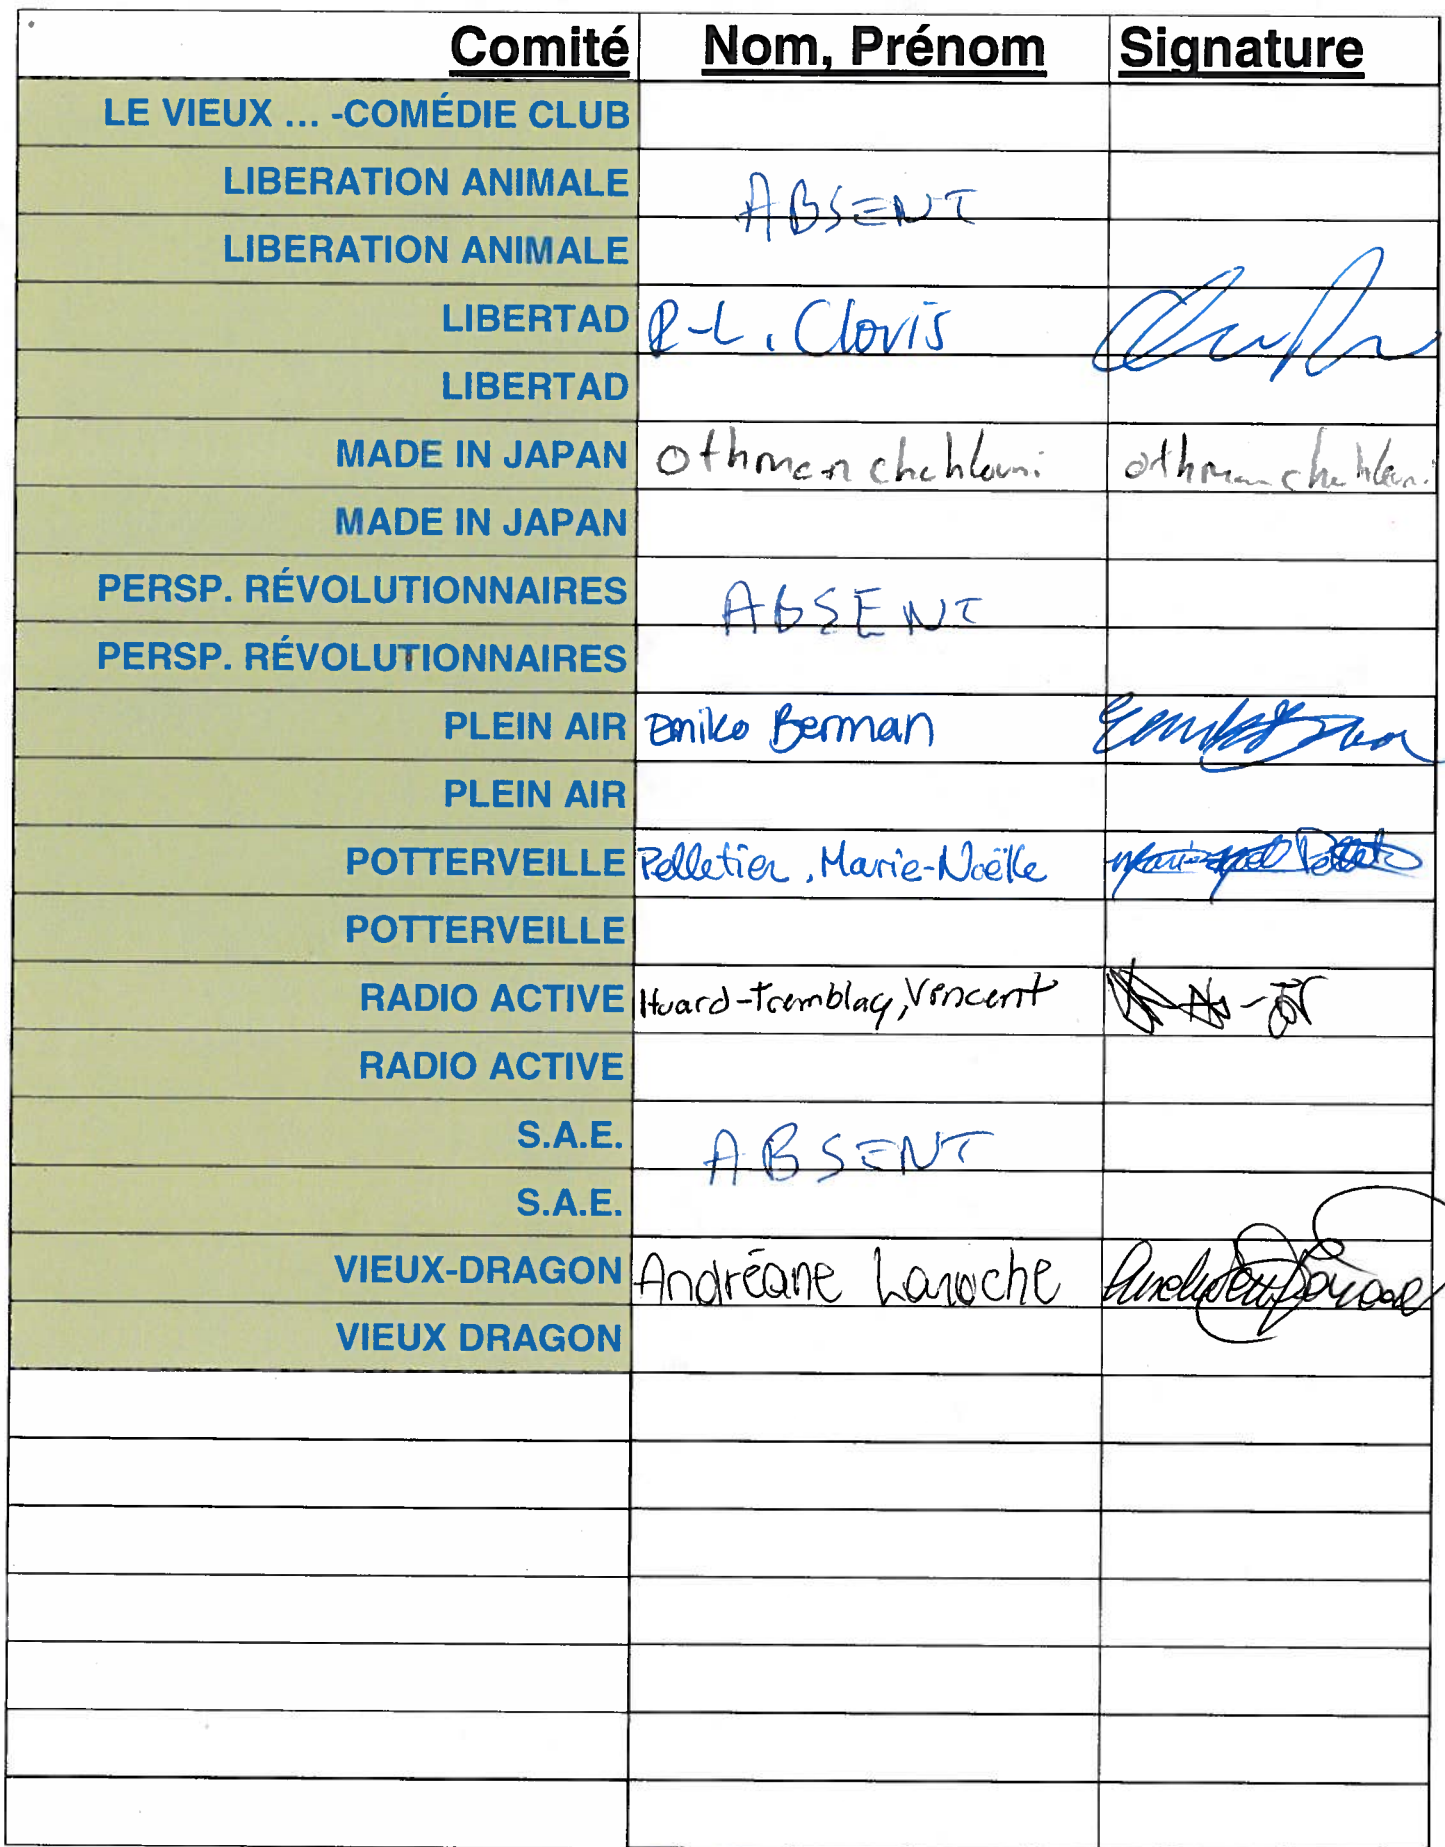 Comité Nom, Prénom Signature
LE VIEUX ... -COMÉDIE CLUB
LIBERATION ANIMALE ABSENT
LIBERATION ANIMALE
LIBERTAD R-L. Clovis
LIBERTAD
MADE IN JAPAN Othman chahlouni othman chahlouni
MADE IN JAPAN
PERSP. RÉVOLUTIONNAIRES ABSENT
PERSP. RÉVOLUTIONNAIRES
PLEIN AIR Emiko Berman
PLEIN AIR
POTTERVEILLE Pelletier, Marie-Noëlle
POTTERVEILLE
RADIO ACTIVE Huard-Tremblay, Vincent
RADIO ACTIVE
S.A.E. ABSENT
S.A.E.
VIEUX-DRAGON Andréane Laroche
VIEUX DRAGON